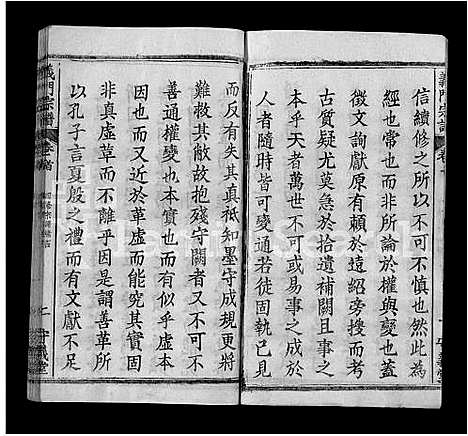 信續修之所以不可不慎也然此為
經也常也而非所論於權與變也蓋
徵文詢獻原有賴於遠紹旁搜而考
古質疑尤莫急於拾遺補闕且事之
本乎天者萬世不可或易事之成於
人者隨時皆可變通若徒固執己見
而反有失其真祗知墨守成規更將
難救其敝故抱殘守闕者又不可不
善通權變也其有似乎虛而實本實
因也文非牽虛而能究其實固
非真虛革而不離乎因是謂善革所
以孔子言夏殷之禮而有文獻不足
義門宗譜
卷首
二
守義堂